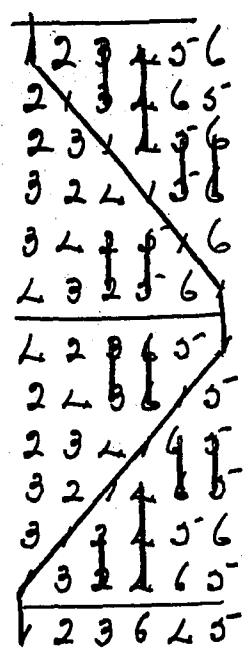 1 2 3 4 5 6
2 1 3 4 6 5
2 3 1 4 5 6
3 2 4 1 5 6
3 4 2 5 1 6
4 3 2 5 6 1
4 2 3 6 5 1
2 4 3 6 1 5
2 3 4 1 6 5
3 2 1 4 6 5
3 1 2 4 5 6
1 3 2 4 6 5
1 2 3 6 4 5